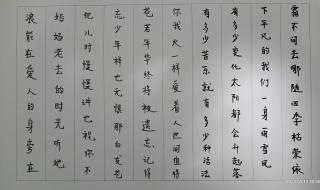 浪能在爱人的身旁在
妈妈老去的时光听她
把儿时慢慢讲也祝你不
忘少年样也无惧那白发苍
苍若年华终将被遗忘记得
你我火一样爱着人世间值得
有多少苦乐就有多少种活法
有多少变化太阳都会升起落
下平凡的我们一身雨雪风
霜不问去哪随四季枯荣依